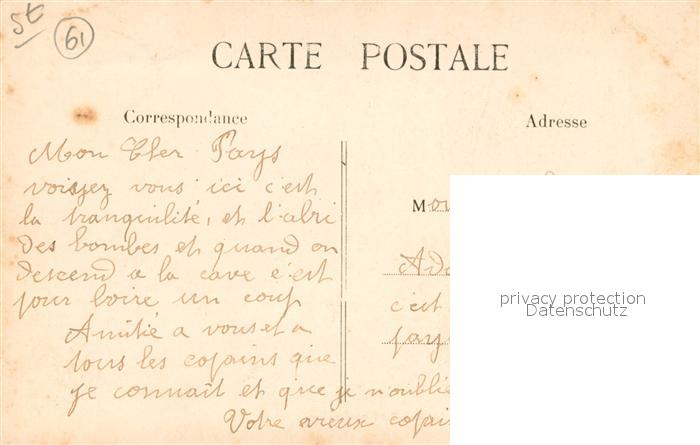 St
61
CARTE POSTALE
Correspondance
Adresse
Mon Cher Pays
voissyez vous ici c'est
la tranquilité, et l'abri
des bombes et quand on
descend a la cave c'est
pour boire un coup
Amitié a vous et a
tous les copains que
je connait et que je n'oublie
Votre vieux copain
M
Ado
c'est
pays
privacy protection
Datenschutz